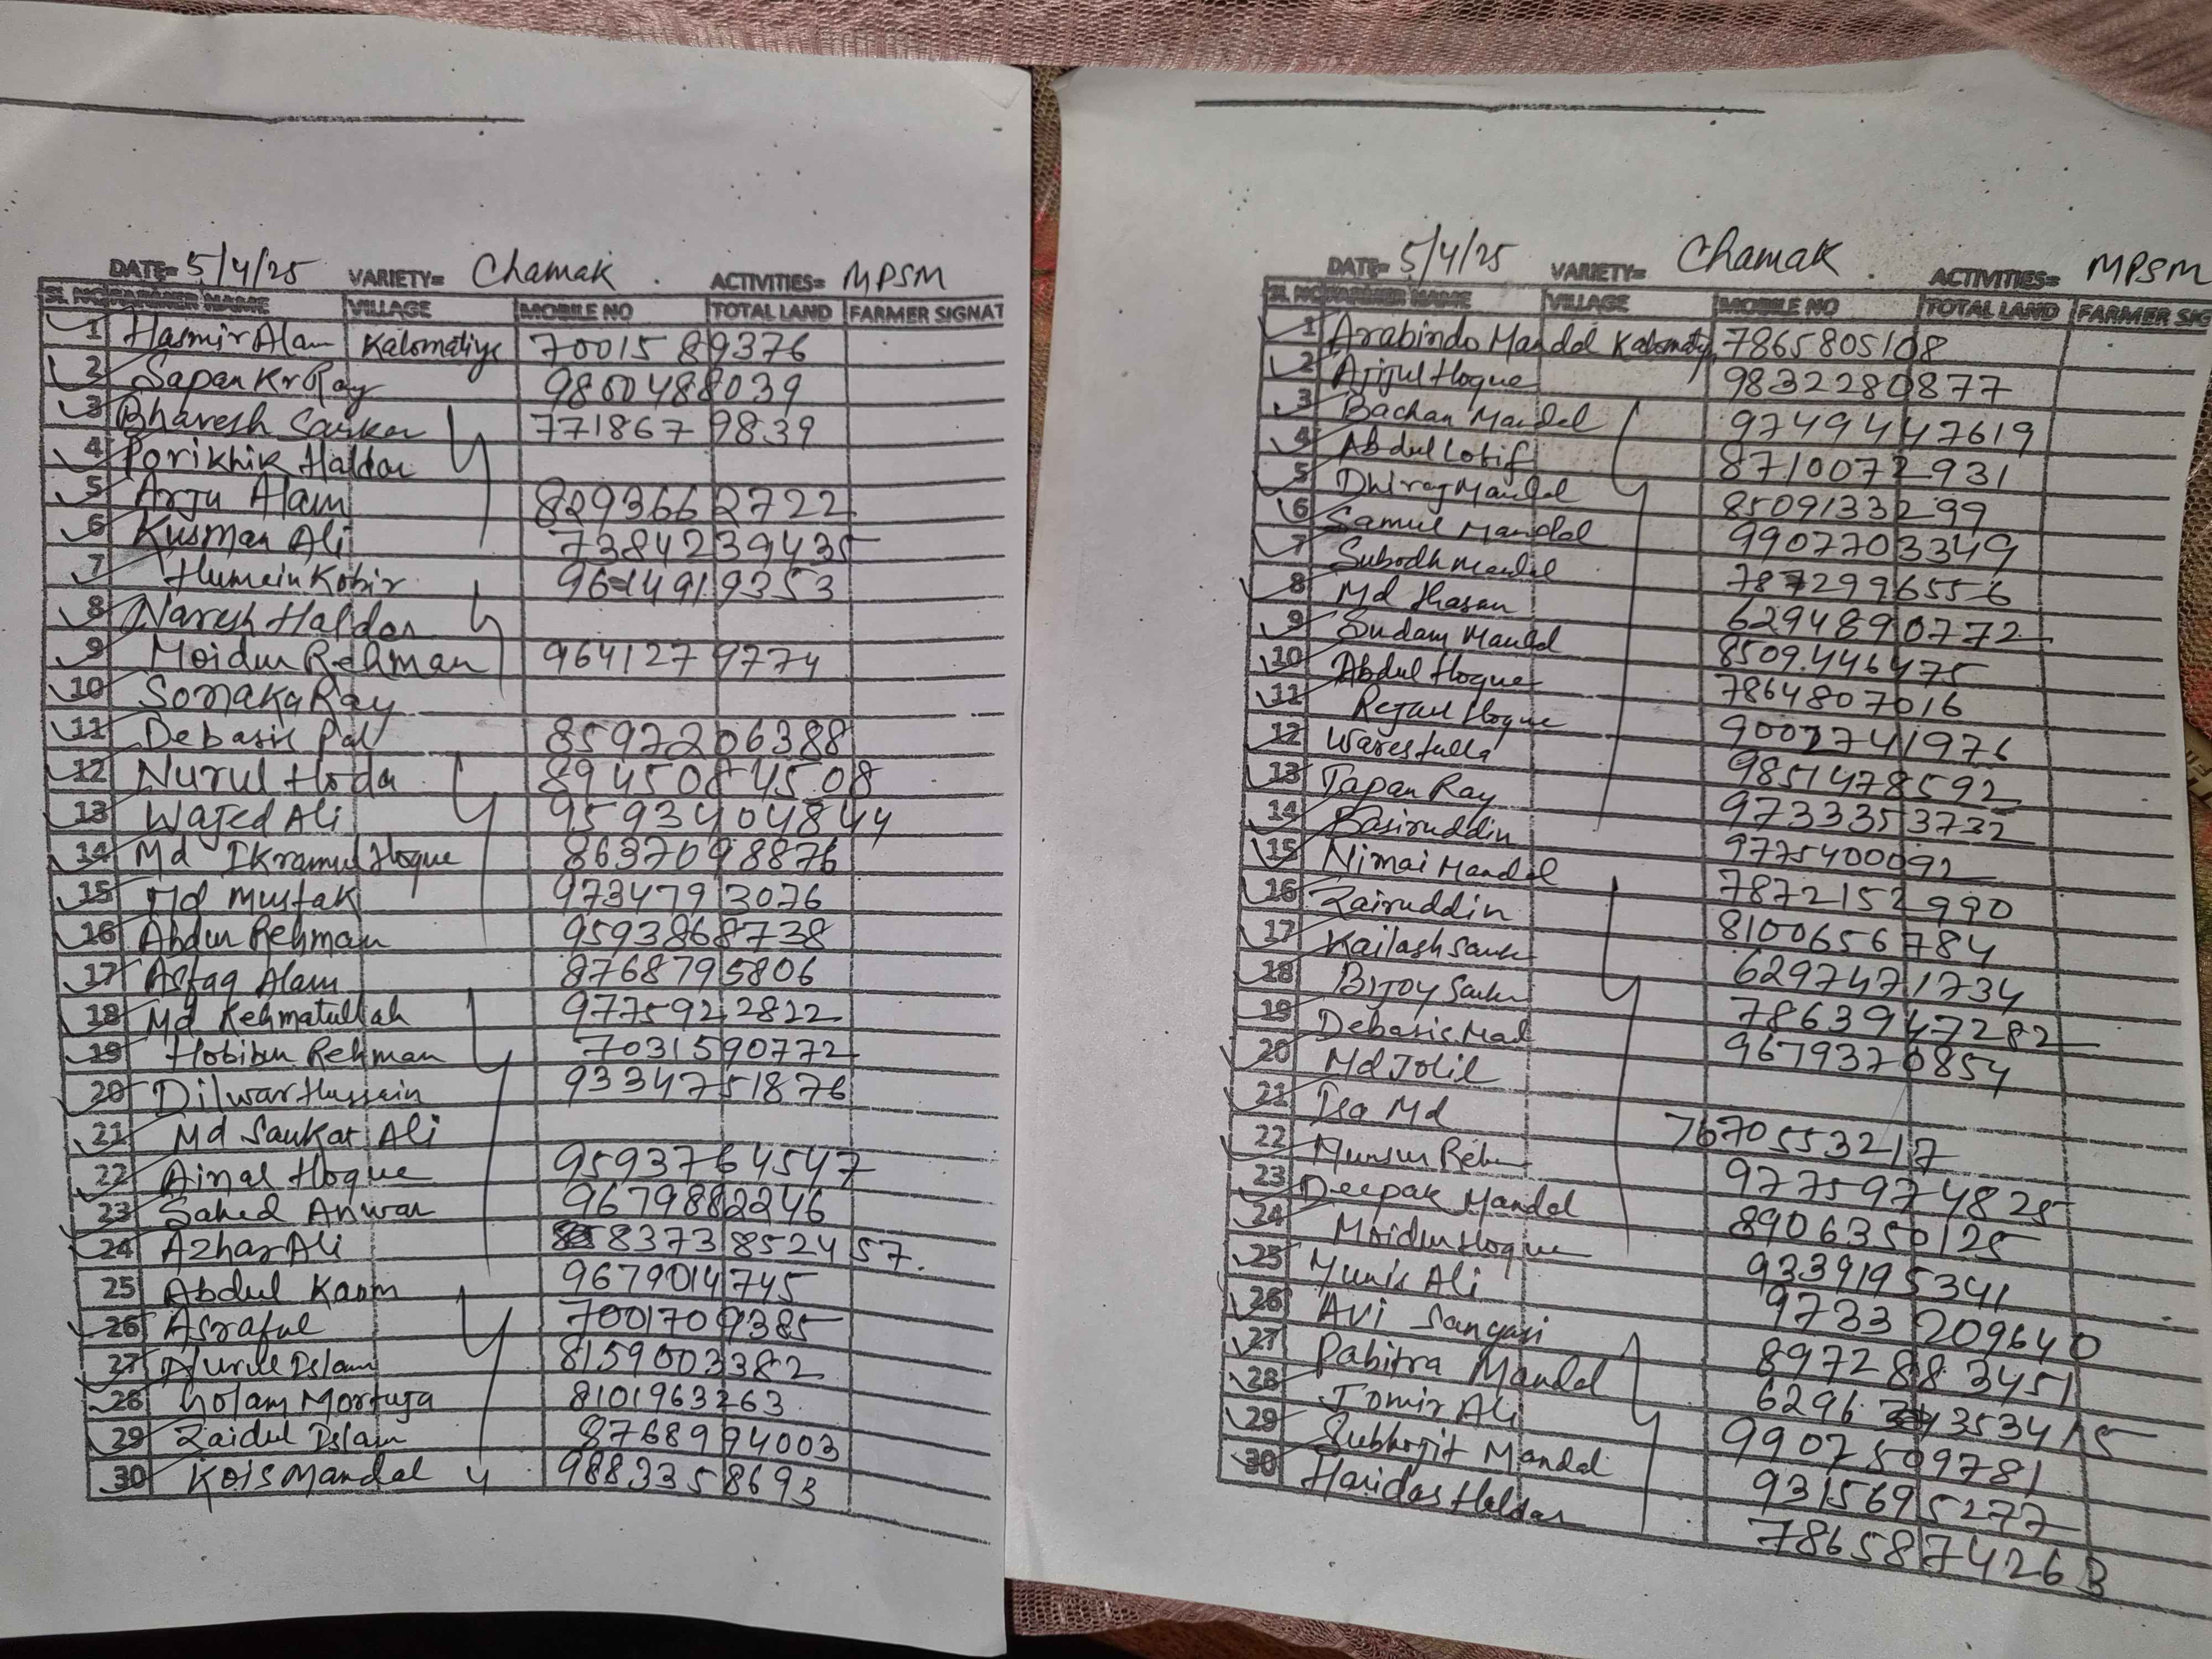 DATE= 5/4/25 VARIETY= Chamak . ACTIVITIES= MPSM
SL NO FARMER NAME VILLAGE MOBILE NO TOTAL LAND FARMER SIGNAT
1 Hasmir Alam Kalomatiya 7001589376
2 Sapan Kr Ray 9800488039
3 Bhavesh Sarkar 7718679839
4 Porikhik Haldar
5 Arju Alam 8293662722
6 Kusman Ali 7384239435
7 Humein Kobir 9614919353
8 Naresh Haldar
9 Moidur Rehman 9641279774
10 Sonaka Ray
11 Debasis Pal 8597206388
12 Nurul Hoda 8945084508
13 Wajed Ali 9593404844
14 Md Ikramul Hoque 8637098876
15 Md Mustak 9734793076
16 Abdur Rehman 9593868738
17 Asfaq Alam 8768795806
18 Md Rehmatullah 9775922822
19 Hobibur Rehman 7031590772
20 Dilwar Hussein 9334751876
21 Md Saukat Ali
22 Ainal Hoque 9593764547
23 Sahed Anwar 9679882246
24 Azhar Ali 8373852457.
25 Abdul Karim 9679014745
26 Asraful 7001709385
27 Nurul Islam 8159003382
28 Golam Mortuja 8101963263
29 Zaidul Islam 8768994003
30 Kois Mandal 9883358693
DATE= 5/4/25 VARIETY= Chamak . ACTIVITIES= MPSM
SL NO FARMER NAME VILLAGE MOBILE NO TOTAL LAND FARMER SIG
1 Arabindo Mandal Kalomatiya 7865805108
2 Arijul Hoque 9832280877
3 Bachan Mandal 9749447619
4 Abdul Lotif 8710072931
5 Dhiraj Mandal 8509133299
6 Samul Mandal 9907703349
7 Subodh Mandal 7872996556
8 Md Hasan 6294890772
9 Sudam Mandal 8509446475
10 Abdul Hoque 7864807016
11 Rejaul Hoque 9002741976
12 Waresfulla 9851478592
13 Tapan Ray 9733353732
14 Basiruddin 9775400092
15 Nimai Mandal 7872152990
16 Zairuddin 8100656784
17 Kailash Sarkar 6297471734
18 Bijoy Sarkar 7863947282
19 Debasis Mal 9679370854
20 Md Jolil
21 Isa Md 7670553217
22 Munsur Reh 9775974825
23 Deepak Mandal 8906350125
24 Moidur Hoque 9339195341
25 Yunis Ali 9733209640
26 Avi Sangari 8972883451
27 Pabitra Mandal 6296353415
28 Jomir Ali 9907509781
29 Subhojit Mandal 9315695277
30 Haridas Haldar 7865874263